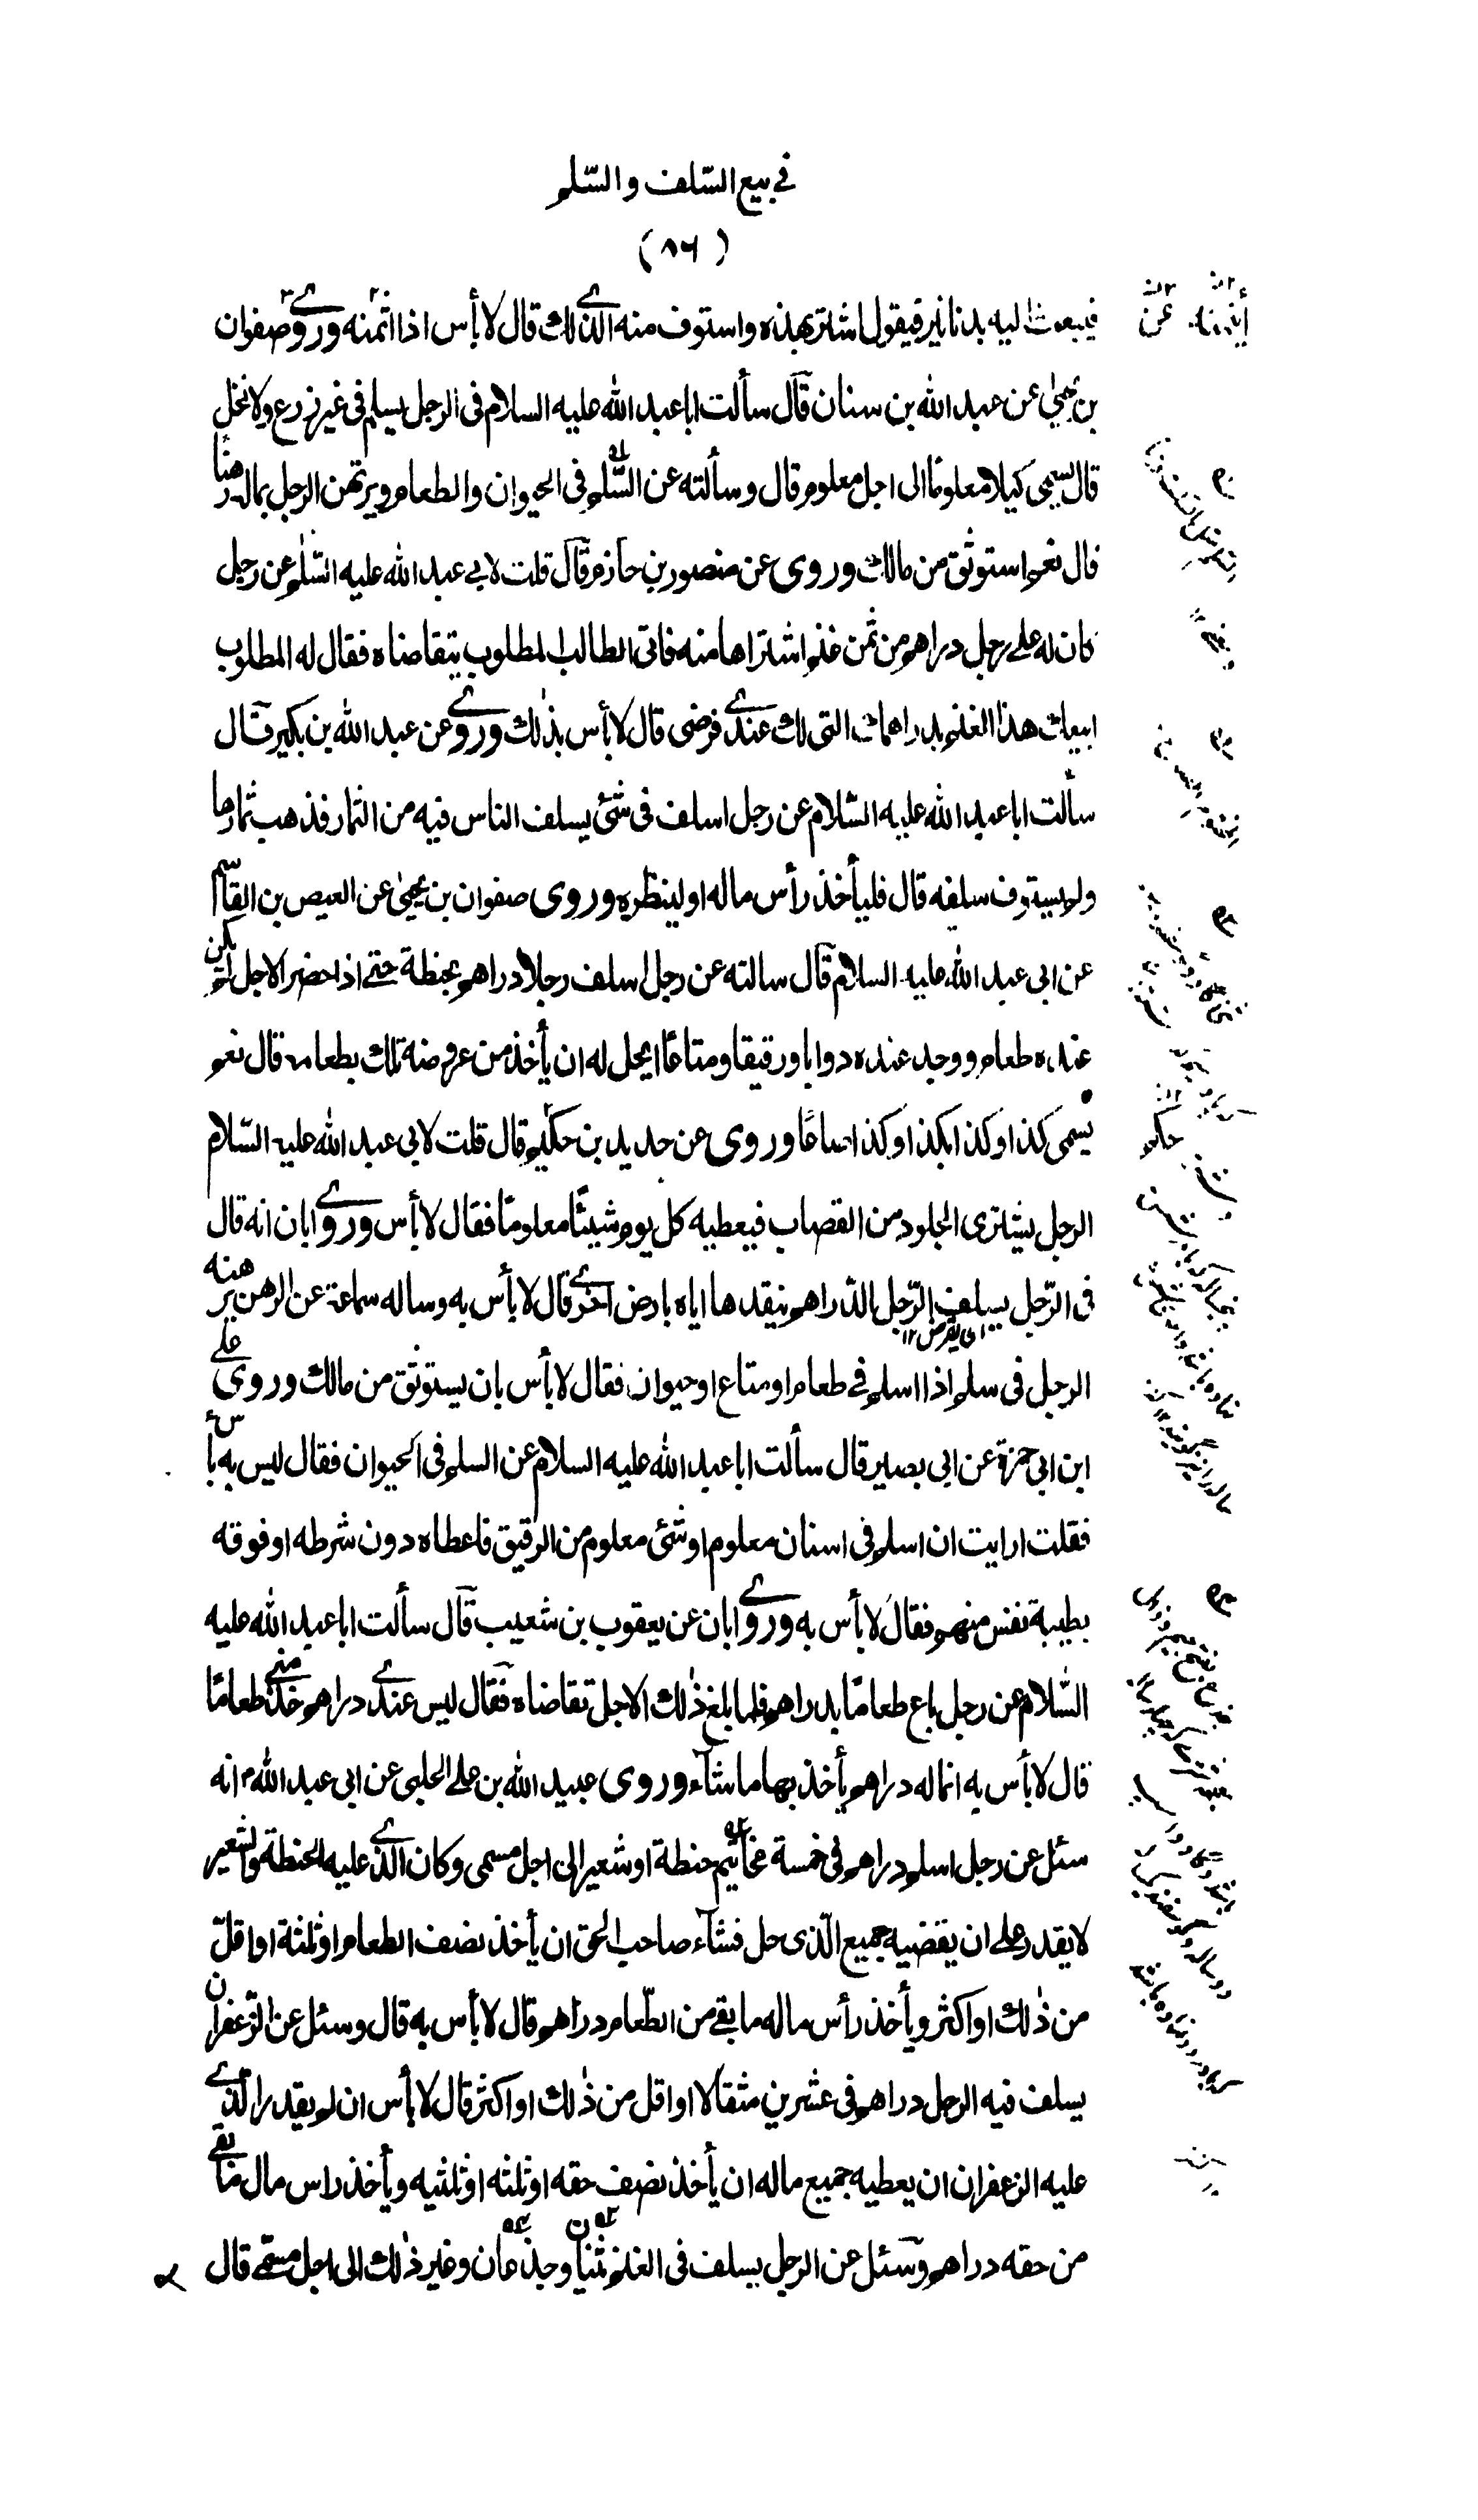 في بيع السّلف والسّلم
(٨٦)
فيبعث اليه بدنانير فيقول اشتر بهذه واستوف منه الذي لك قال لا بأس اذا ائتمنه وروى صفوان
بن يحيى عن عبد الله بن سنان قال سألت ابا عبد الله عليه السلام في الرجل يسلم في غير زرع ولا نخل
قال يسمى كيلا معلومًا الى اجل معلوم قال وسألته عن السّلم في الحيوان والطعام ويرتهن الرجل بماله رهنًا
قال نعم استوثق من مالك وروى عن منصور بن حازم قال قلت لابي عبد الله عليه السّلم عن رجل
كان له على رجل دراهم من ثمن غنم اشتراها منه فاتى الطالب المطلوب يتقاضاه فقال له المطلوب
ابيعك هذا الغنم بدراهمك التي لك عندي فرضى قال لا بأس بذٰلك وروى عن عبد الله بن بكير قال
سألت ابا عبد الله عليه السّلام عن رجل اسلف في شئ يسلف الناس فيه من الثمار فذهب ثمارها
ولم يستوف سلفه قال فليأخذ رأس ماله او لينظره وروى صفوان بن يحيىٰ عن العيص بن القاسم
عن ابي عبد الله عليه السلام قال سالته عن رجل اسلف رجلا دراهم بحنطة حتى اذا حضر الاجل لم يكن
عنده طعام ووجد عنده دوابا ورقيقا ومتاعًا ايحل له ان يأخذ من عروضه تلك بطعامه قال نعم
يسمى كذا وكذا بكذا وكذا صاعًا وروى عن حديد بن حكيم قال قلت لابي عبد الله عليه السّلام
الرجل يشترى الجلود من القصاب فيعطيه كل يوم شيئًا معلومًا فقال لا بأس وروى ابان انه قال
في الرّجل يسلف الرّجل الدّراهم ينقدها اياه بارض اخرى قال لا بأس به وساله سماعة عن الرهن يرهنه
اى يقرض ١٢
الرجل في سلم اذا اسلم في طعام او متاع او حيوان فقال لا بأس بان يستوثق من مالك وروى على
ابن ابي حمزة عن ابي بصير قال سألت ابا عبد الله عليه السلام عن السلم في الحيوان فقال ليس به بأس
فقلت ارايت ان اسلم في اسنان معلوم او شئ معلوم من الرقيق فاعطاه دون شرطه او فوقه
بطيبة نفس منهم فقال لا بأس به وروى ابان عن يعقوب بن شعيب قال سألت ابا عبد الله عليه
السّلام عن رجل باع طعامًا بدراهم فلما بلغ ذٰلك الاجل تقاضاه فقال ليس عندي دراهم خذ منى طعامًا
قال لا بأس به انما له دراهم يأخذ بها ما شاء وروى عبيد الله بن على الحلبى عن ابي عبد الله ؑ انه
سئل عن رجل اسلم دراهم في خمسة مخاتيم حنطة او شعير الى اجل مسمى وكان الذي عليه الحنطة والشعير
لا يقدر على ان يقضيه جميع الّذى حل فشاء صاحب الحق ان يأخذ نصف الطعام او ثلثة او اقلّ
من ذٰلك او اكثر ويأخذ رأس ماله ما بقى من الطّعام دراهم قال لا بأس به قال وسئل عن الزّعفران
يسلف فيه الرجل دراهم في عشرين مثقالا او اقل من ذٰلك او اكثر قال لا بأس ان لم يقدر الّذي
عليه الزعفران ان يعطيه جميع ماله ان يأخذ نصف حقه او ثلثه او ثلثيه ويأخذ راس مال ما بقى
من حقه دراهم وسئل عن الرجل يسلف في الغنم ثنيان وجذعان وغير ذٰلك الى اجل مسمى قال